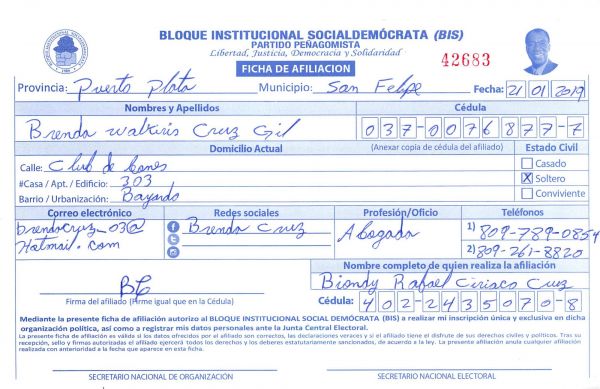 BLOQUE INSTITUCIONAL SOCIALDEMÓCRATA (BIS)
PARTIDO PEÑAGOMISTA
Libertad, Justicia, Democracia y Solidaridad
42683
FICHA DE AFILIACION
Provincia: Puerto Plata Municipio: San Felipe Fecha: 21 01 2019
Nombres y Apellidos Cédula
Brenda Walkiris Cruz Gil 037-0076877-7
Domicilio Actual (Anexar copia de cédula del afiliado) Estado Civil
Calle: Club de Leones Casado
#Casa / Apt. / Edificio: 303 X Soltero
Barrio / Urbanización: Bayardo Conviviente
Correo electrónico Redes sociales Profesión/Oficio Teléfonos
brendacruz_03@ Brenda Cruz Abogada 1) 809-789-0854
Hotmail.com 2) 809-261-8820
Nombre completo de quien realiza la afiliación
Biondy Rafael Ciriaco Cruz
Firma del afiliado (Firme igual que en la Cédula) Cédula: 402-2435070-8
Mediante la presente ficha de afiliación autorizo al BLOQUE INSTITUCIONAL SOCIAL DEMÓCRATA (BIS) a realizar mi inscripción única y exclusiva en dicha
organización política, así como a registrar mis datos personales ante la Junta Central Electoral.
La presente ficha de afiliación es válida si los datos ofrecidos por el afiliado son correctos, las declaraciones veraces y si el afiliado tiene el disfrute de sus derechos civiles y políticos. Tras su
recepción, sello y firmas autorizadas el afiliado ejercerá todos los derechos y los deberes estatutariamente sancionados, de acuerdo a la ley. La presente afiliación anula cualquier afiliación
realizada con anterioridad a la fecha que aparece en esta ficha.
SECRETARIO NACIONAL DE ORGANIZACIÓN SECRETARIO NACIONAL ELECTORAL